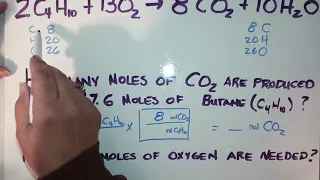 2C₄H₁₀ + 13O₂ → 8CO₂ + 10H₂O
C 8 8 C
H 20 20 H
26 26 O
MANY MOLES OF CO₂ ARE PRODUCED
7.6 MOLES OF BUTANE (C₄H₁₀)?
C₄H₁₀ × 8 molCO₂ / molC₄H₁₀ = — mol CO₂
MOLES OF OXYGEN ARE NEEDED?